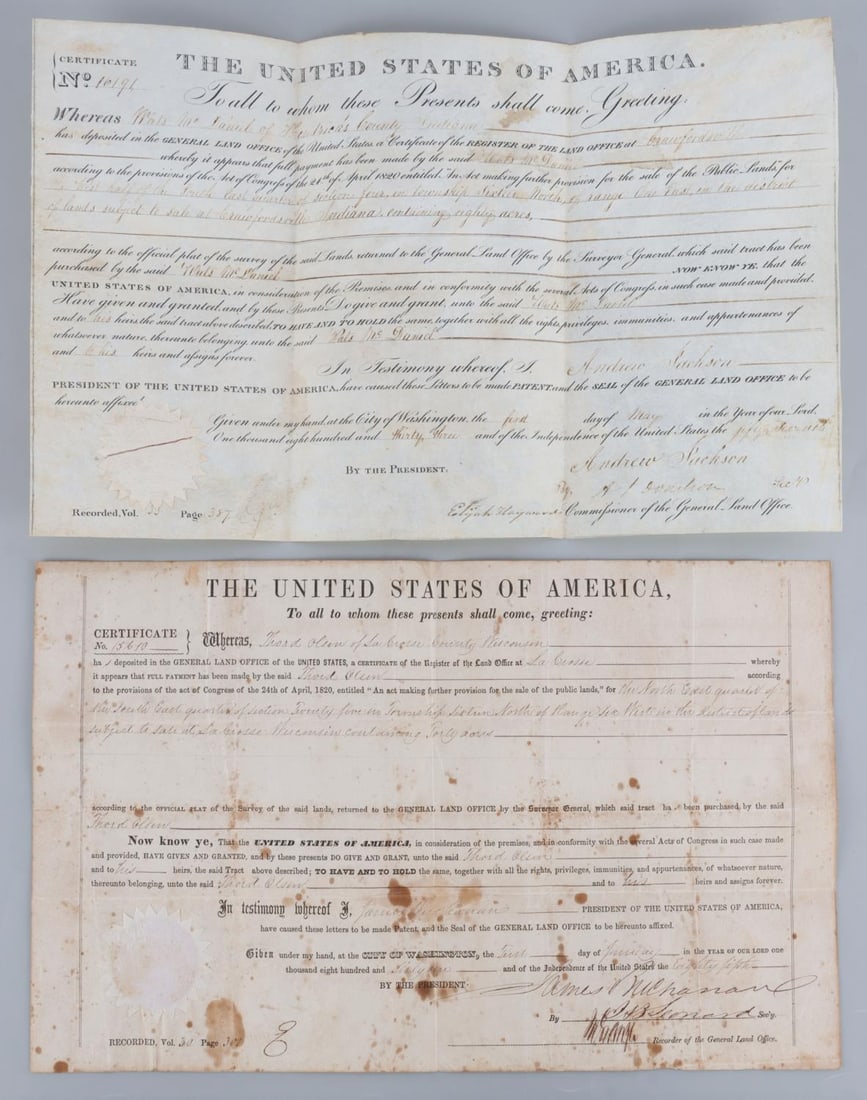 CERTIFICATE
No. 10191
THE UNITED STATES OF AMERICA.
To all to whom these Presents shall come, Greeting:
Whereas Wats Mc Daniel of Hendricks County Indiana
has deposited in the GENERAL LAND OFFICE of the United States, a Certificate of the REGISTER OF THE LAND OFFICE at Crawfordsville
whereby it appears that full payment has been made by the said Wats Mc Daniel
according to the provisions of the Act of Congress of the 24th of April 1820 entitled "An Act making further provision for the sale of the Public Lands" for
the West half of the South East quarter of section four, in township Sixteen North, of range One East, in the district
of lands subject to sale at Crawfordsville Indiana, containing eighty acres,
according to the official plat of the survey of the said Lands, returned to the General Land Office by the Surveyor General, which said tract has been
purchased by the said Wats Mc Daniel NOW KNOW YE, that the
UNITED STATES OF AMERICA, in consideration of the Premises and in conformity with the several Acts of Congress, in such case made and provided,
Have given and granted, and by these Presents Do give and grant, unto the said Wats Mc Daniel
and to his heirs, the said tract above described, TO HAVE AND TO HOLD the same, together with all the rights, privileges, immunities, and appurtenances of
whatsoever nature, thereunto belonging, unto the said Wats Mc Daniel
and to his heirs and assigns forever.
In Testimony whereof, I, Andrew Jackson
PRESIDENT OF THE UNITED STATES OF AMERICA, have caused these Letters to be made PATENT and the SEAL of the GENERAL LAND OFFICE to be
hereunto affixed
Given under my hand, at the City of Washington, the first day of May in the Year of our Lord,
One thousand eight hundred and thirty three and of the Independence of the United States the fifty seventh
Andrew Jackson
BY THE PRESIDENT:
By A J Donelson Sec'y
Elijah Hayward Commissioner of the General Land Office
Recorded, Vol. 33 Page 387
THE UNITED STATES OF AMERICA,
To all to whom these presents shall come, greeting:
CERTIFICATE
No. 15610
Whereas, Thord Olsen of La Crosse County Wisconsin
has deposited in the GENERAL LAND OFFICE of the UNITED STATES, A CERTIFICATE of the Register of the Land Office at La Crosse whereby
it appears that FULL PAYMENT has been made by the said Thord Olsen according
to the provisions of the act of Congress of the 24th of April, 1820, entitled "An act making further provision for the sale of the public lands," for the North East quarter of
the South East quarter of section Twenty five in Township sixteen North of Range six West in the district of lands
subject to sale at La Crosse Wisconsin containing forty acres
according to the OFFICIAL PLAT of the Survey of the said lands, returned to the GENERAL LAND OFFICE by the Surveyor General, which said tract has been purchased by the said
Thord Olsen
Now know ye, That the UNITED STATES OF AMERICA, in consideration of the premises, and in conformity with the several Acts of Congress in such case made
and provided, HAVE GIVEN AND GRANTED, and by these presents DO GIVE AND GRANT, unto the said Thord Olsen
and to his heirs, the said Tract above described; TO HAVE AND TO HOLD the same, together with all the rights, privileges, immunities, and appurtenances, of whatsoever nature,
thereunto belonging, unto the said Thord Olsen and to his heirs and assigns forever.
In testimony whereof I, James Buchanan PRESIDENT OF THE UNITED STATES OF AMERICA,
have caused these letters to be made Patent, and the Seal of the GENERAL LAND OFFICE to be hereunto affixed.
Given under my hand, at the CITY OF WASHINGTON, the first day of in the YEAR OF OUR LORD one
thousand eight hundred and and of the Independence of the United States the Eighty fifth
BY THE PRESIDENT: James Buchanan
By J B Leonard Sec'y.
Recorder of the General Land Office.
RECORDED, Vol. Page